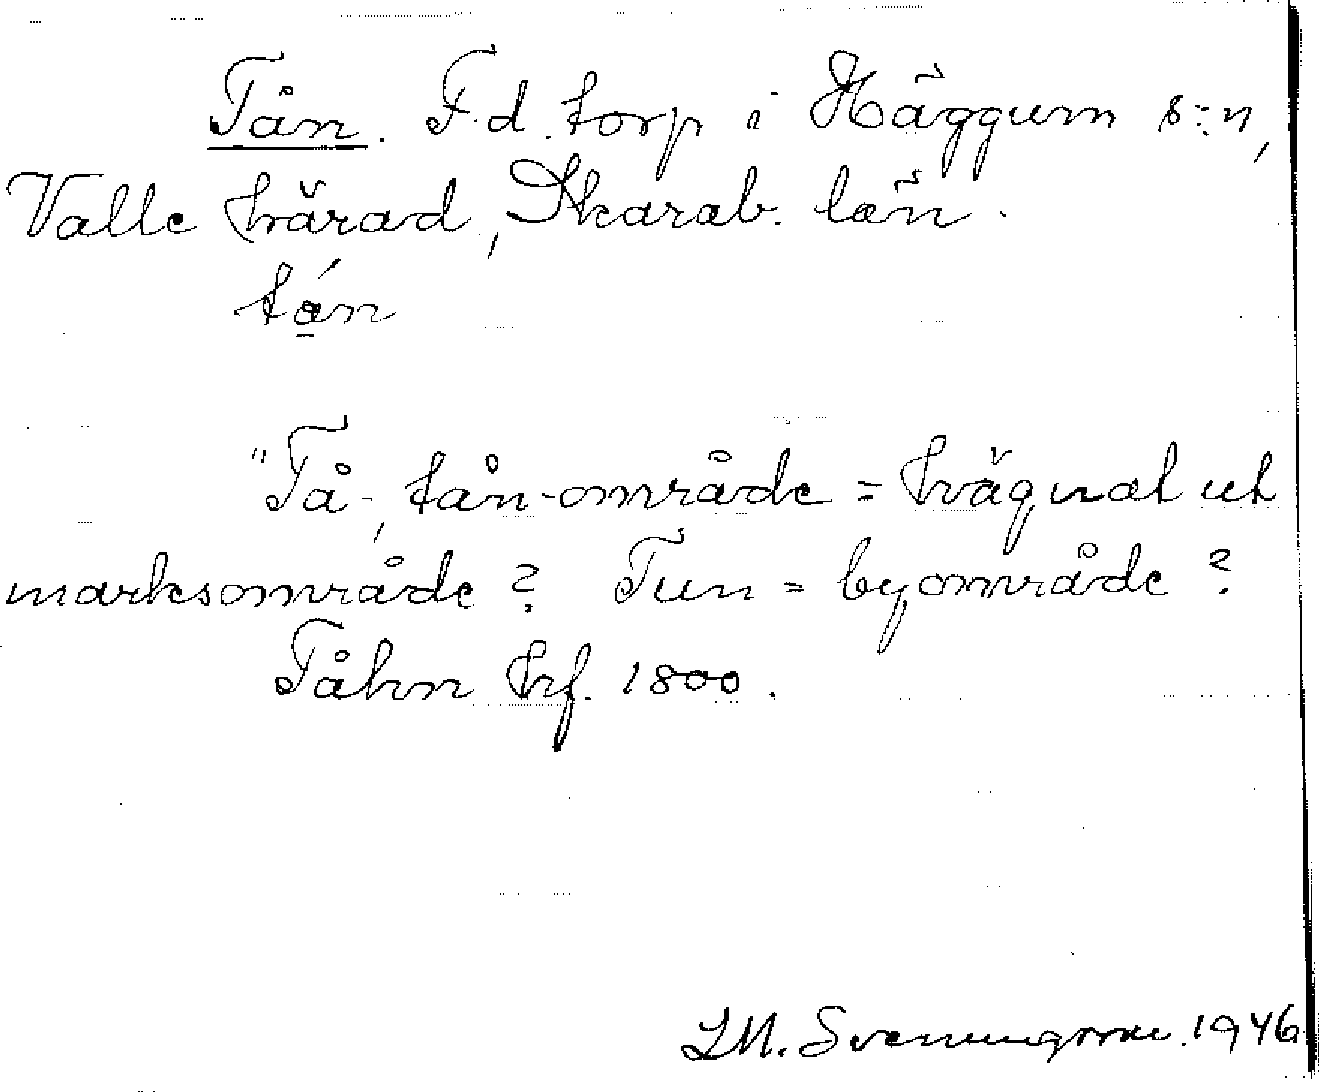 Tån. F.d. torp i Häggum s:n,
Valle härad, Skarab. län.
tán
"Tå-, tån-område = hägnat ut
marksområde? Tun = byområde?
Tåhn hrf. 1800.
LM. Svenungsson 1946